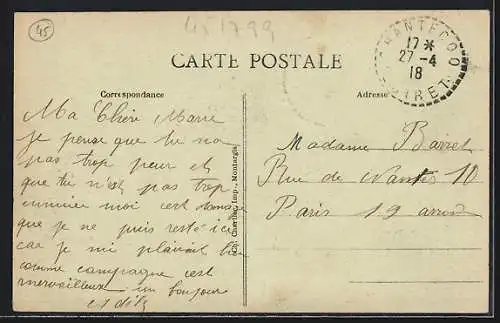 45
45 1799
CARTE POSTALE
Correspondance
Adresse
CHANTECOQ
17 *
27 - 4
18
LOIRET
Ma Chère Marie
je pense que tu na
pas trop peur et
que tu n'est pas trop
ennuier moi cest damage
que je ne puis resté ici
car je mi plairait bien
comme campagne cest
merveilleux un bonjour
et dit
Ch. Cherlier, Imp., Montargis
Madame Barret
Rue de Nantes 10
Paris 19 arron